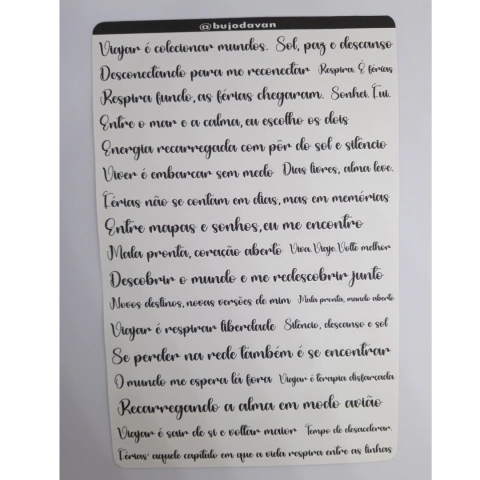 @bujodavan
Viajar é colecionar mundos. Sol, paz e descanso
Desconectando para me reconectar Respira. É férias
Respira fundo, as férias chegaram. Sonhei. Fui.
Entre o mar e a calma, eu escolho os dois
Energia recarregada com pôr do sol e silêncio
Viver é embarcar sem medo Dias livres, alma leve.
Férias não se contam em dias, mas em memórias
Entre mapas e sonhos, eu me encontro
Mala pronta, coração aberto Viva. Viaje. Volte melhor
Descobrir o mundo e me redescobrir junto
Novos destinos, novas versões de mim Mala pronta, mundo aberto
Viajar é respirar liberdade Silêncio, descanso e sol
Se perder na rede também é se encontrar
O mundo me espera lá fora Viajar é terapia disfarçada
Recarregando a alma em modo avião
Viajar é sair de si e voltar maior Tempo de desacelerar.
Férias: aquele capítulo em que a vida respira entre as linhas